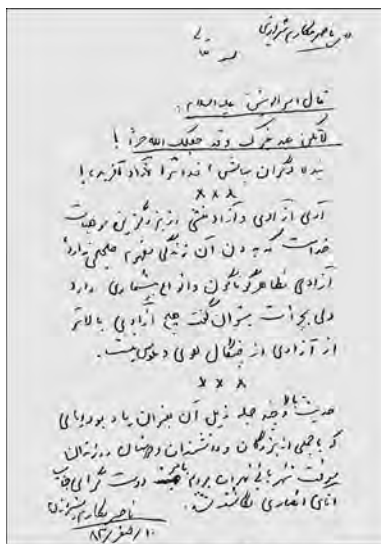 ناصر مکارم شیرازی
بسمه تعالی
قال امیرالمؤمنین علیه السلام:
لاتکن عبد غیرک وقد جعلک الله حرا!
بنده دگران مباش خدا ترا آزاد آفریده!
×××
آری آزادی و آزادگی از بزرگترین موهبت
خداست که بدون آن زندگی مفهوم صحیحی ندارد
آزادی مظاهر گوناگون و انواع بیشماری دارد
ولی بجرأت میتوان گفت هیچ آزادی بالاتر
از آزادی از چنگال هوی و هوس نیست.
×××
حدیث بالا و چند جمله ذیل آن بعنوان یادبود برای
که با جمعی از بزرگان و دانشمندان در زندان
موقت شهربانی تهران بودم دوست گرامی جناب
آقای انصاری نگاشته شد.
ناصر مکارم شیرازی
۱۰/صفر/۸۳